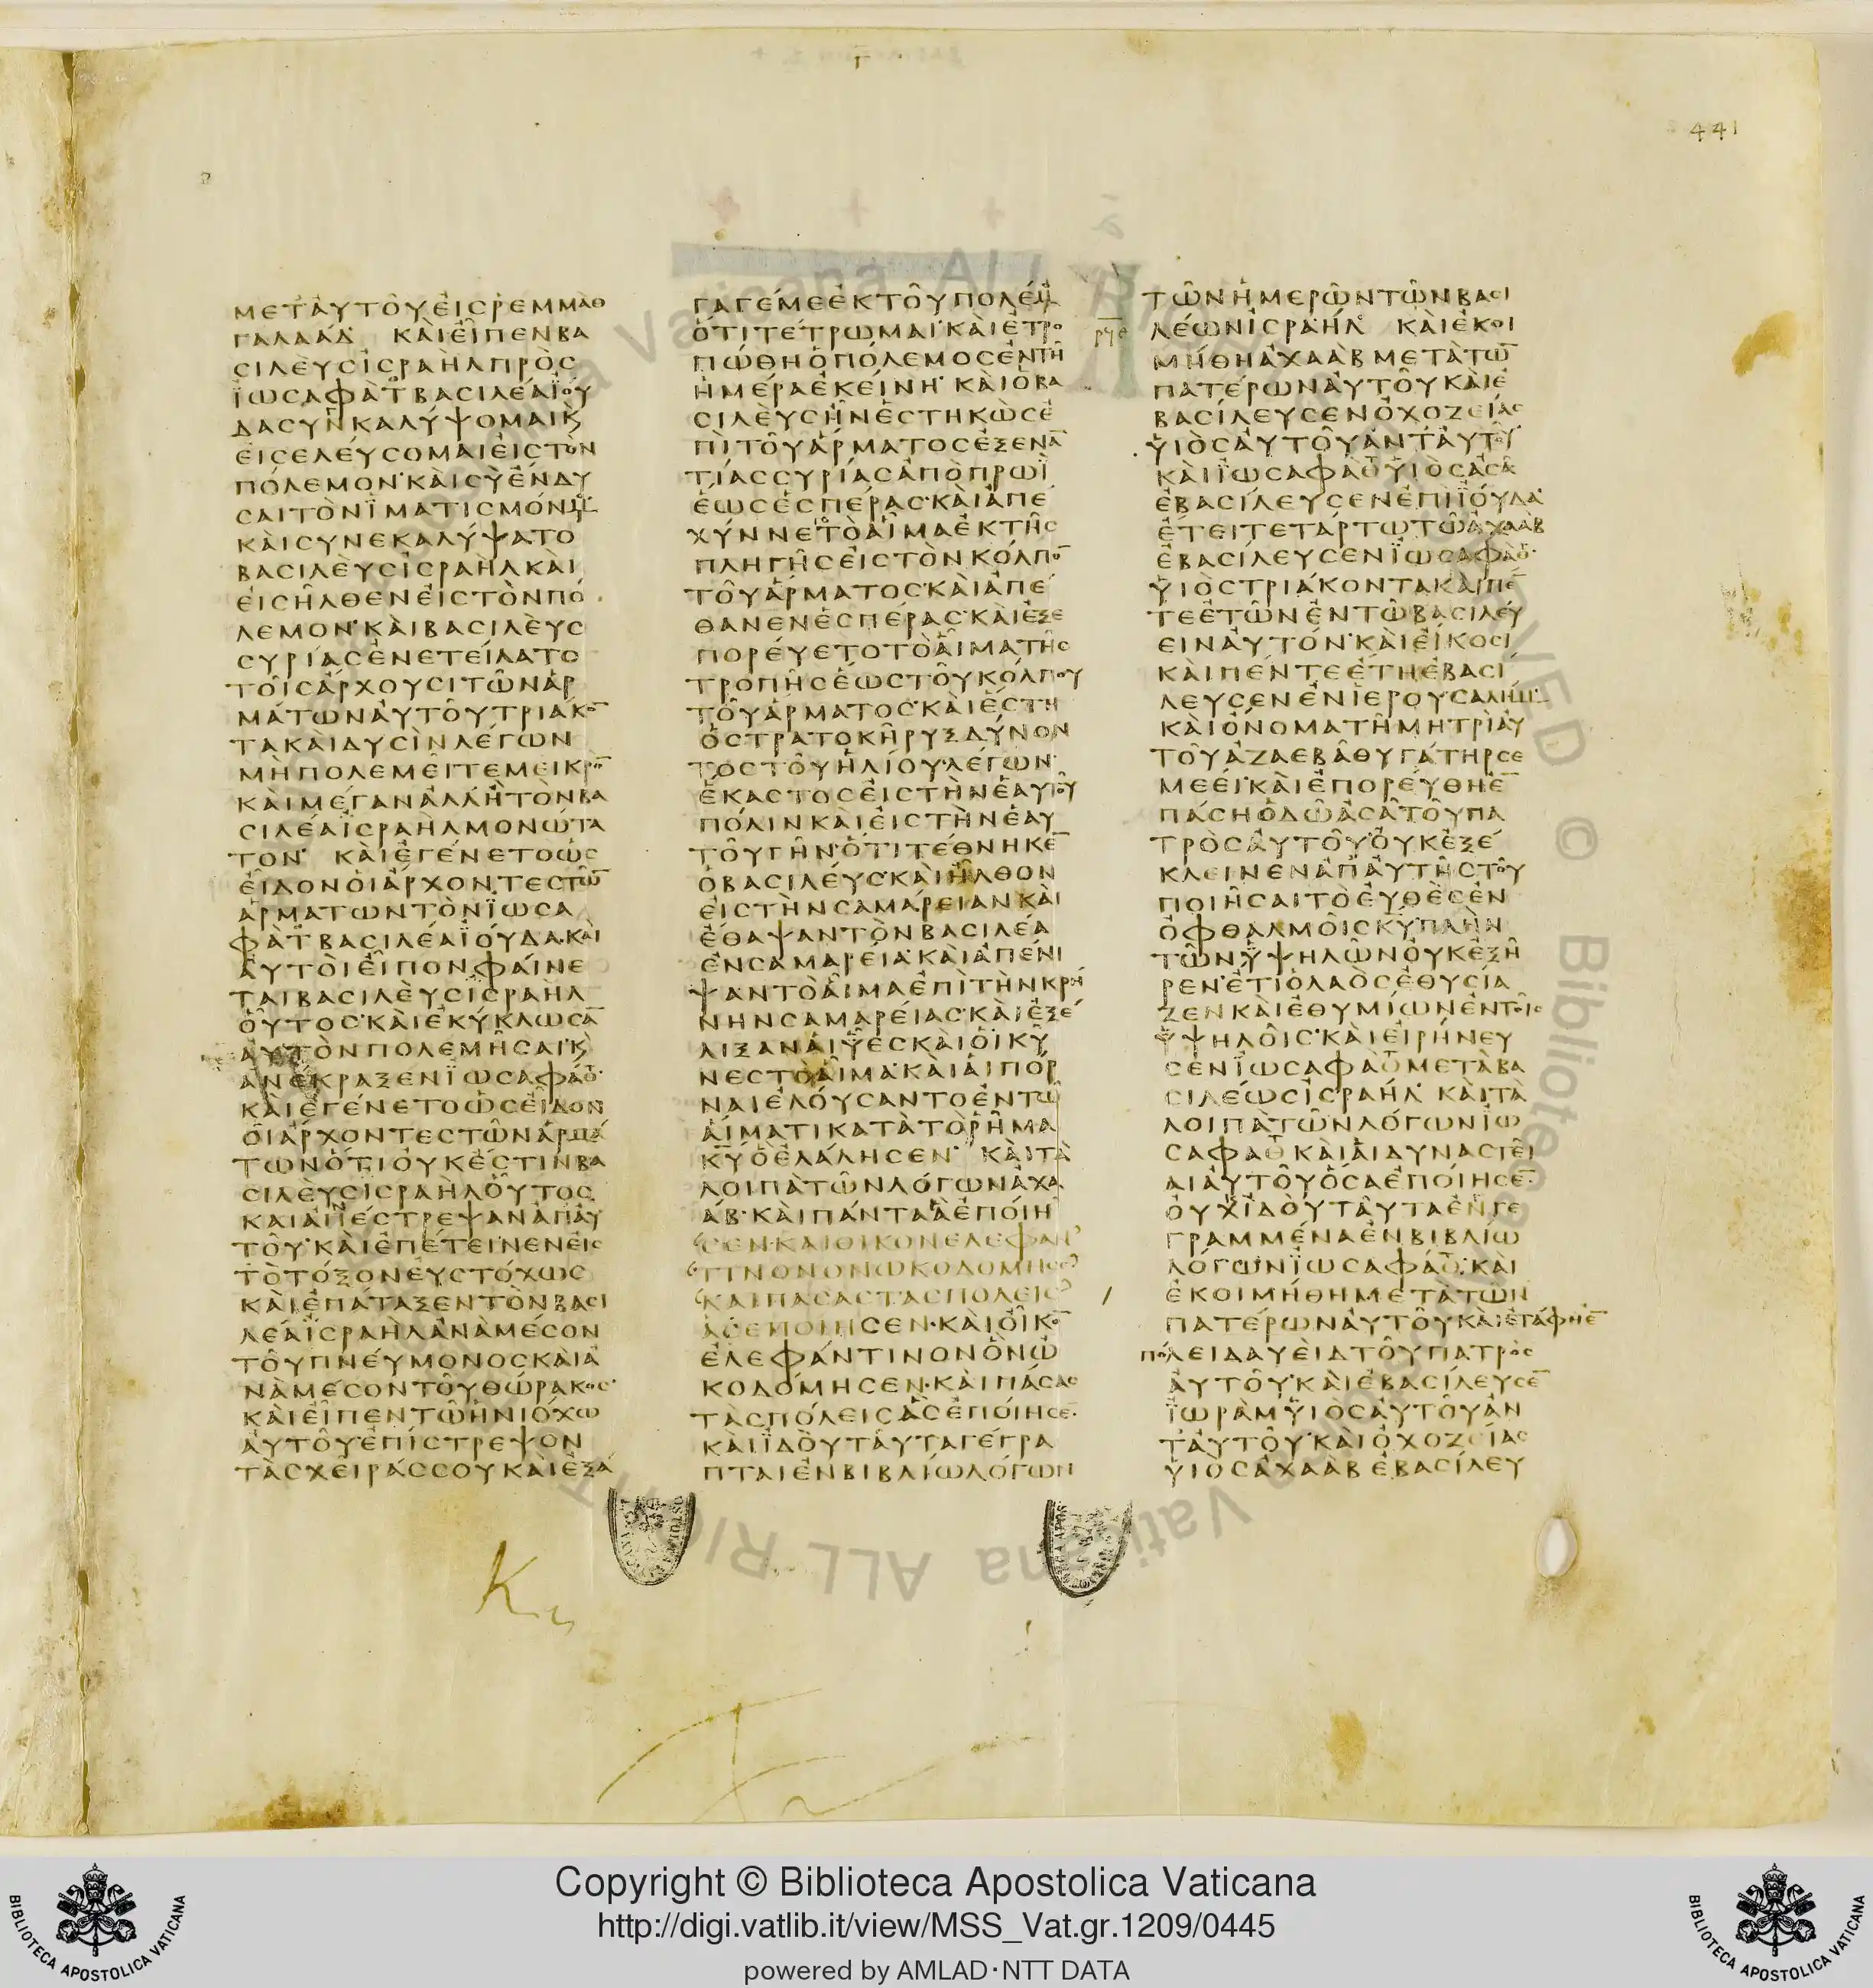 441
ΜΕΤΑΥΤΟΥΕΙΣΡΕΜΜΑΘ
ΓΑΛΑΑΔ ΚΑΙΕΙΠΕΝΒΑ
ΣΙΛΕΥΣΙΣΡΑΗΛΠΡΟΣ
ΙΩΣΑΦΑΤΒΑΣΙΛΕΑΙΟΥ
ΔΑΣΥΝΚΑΛΥΨΟΜΑΙΚ
ΕΙΣΕΛΕΥΣΟΜΑΙΕΙΣΤΟΝ
ΠΟΛΕΜΟΝ·ΚΑΙΣΥΕΝΔΥ
ΣΑΙΤΟΝΙΜΑΤΙΣΜΟΝΜΟΥ
ΚΑΙΣΥΝΕΚΑΛΥΨΑΤΟ
ΒΑΣΙΛΕΥΣΙΣΡΑΗΛΚΑΙ
ΕΙΣΗΛΘΕΝΕΙΣΤΟΝΠΟ
ΛΕΜΟΝ·ΚΑΙΒΑΣΙΛΕΥΣ
ΣΥΡΙΑΣΕΝΕΤΕΙΛΑΤΟ
ΤΟΙΣΑΡΧΟΥΣΙΤΩΝΑΡ
ΜΑΤΩΝΑΥΤΟΥΤΡΙΑΚΟ̅
ΤΑΚΑΙΔΥΣΙΝΛΕΓΩΝ
ΜΗΠΟΛΕΜΕΙΤΕΜΕΙΚΡΟ̅
ΚΑΙΜΕΓΑΝΑΛΛΗΤΟΝΒΑ
ΣΙΛΕΑΙΣΡΑΗΛΜΟΝΩΤΑ
ΤΟΝ· ΚΑΙΕΓΕΝΕΤΟΩΣ
ΕΙΔΟΝΟΙΑΡΧΟΝΤΕΣΤΩ̅
ΑΡΜΑΤΩΝΤΟΝΙΩΣΑ
ΦΑΤΒΑΣΙΛΕΑΙΟΥΔΑ·ΚΑΙ
ΑΥΤΟΙΕΙΠΟΝΦΑΙΝΕ
ΤΑΙΒΑΣΙΛΕΥΣΙΣΡΑΗΛ
ΟΥΤΟΣ·ΚΑΙΕΚΥΚΛΩΣΑ̅
ΑΥΤΟΝΠΟΛΕΜΗΣΑΙ·Κ
ΑΝΕΚΡΑΞΕΝΙΩΣΑΦΑΘ·
ΚΑΙΕΓΕΝΕΤΟΩΣΕΙΔΟΝ
ΟΙΑΡΧΟΝΤΕΣΤΩΝΑΡΜΑ
ΤΩΝΟΤΙΟΥΚΕΣΤΙΝΒΑ
ΣΙΛΕΥΣΙΣΡΑΗΛΟΥΤΟΣ
ΚΑΙΑΠΕΣΤΡΕΨΑΝΑΠΑΥ
ΤΟΥ·ΚΑΙΕΠΕΤΕΙΝΕΝΕΙΣ
ΤΟΤΟΞΟΝΕΥΣΤΟΧΩΣ
ΚΑΙΕΠΑΤΑΞΕΝΤΟΝΒΑΣΙ
ΛΕΑΙΣΡΑΗΛΑΝΑΜΕΣΟΝ
ΤΟΥΠΝΕΥΜΟΝΟΣΚΑΙΑ
ΝΑΜΕΣΟΝΤΟΥΘΩΡΑΚΟΣ·
ΚΑΙΕΙΠΕΝΤΩΗΝΙΟΧΩ
ΑΥΤΟΥΕΠΙΣΤΡΕΨΟΝ
ΤΑΣΧΕΙΡΑΣΣΟΥΚΑΙΕΞΑ
ΓΑΓΕΜΕΕΚΤΟΥΠΟΛΕΜΟΥ
ΟΤΙΤΕΤΡΩΜΑΙ·ΚΑΙΕΤΡΟ
ΠΩΘΗΟΠΟΛΕΜΟΣΕΝΤΗ
ΗΜΕΡΑΕΚΕΙΝΗ·ΚΑΙΟΒΑ
ΣΙΛΕΥΣΗΝΕΣΤΗΚΩΣΕ
ΠΙΤΟΥΑΡΜΑΤΟΣΕΞΕΝΑ̅
ΤΙΑΣΣΥΡΙΑΣΑΠΟΠΡΩΙ
ΕΩΣΕΣΠΕΡΑΣ·ΚΑΙΑΠΕ
ΧΥΝΝΕΤΟΑΙΜΑΕΚΤΗΣ
ΠΛΗΓΗΣΕΙΣΤΟΝΚΟΛΠΟ̅
ΤΟΥΑΡΜΑΤΟΣ·ΚΑΙΑΠΕ
ΘΑΝΕΝΕΣΠΕΡΑΣ·ΚΑΙΕΞΕ
ΠΟΡΕΥΕΤΟΤΟΑΙΜΑΤΗΣ
ΤΡΟΠΗΣΕΩΣΤΟΥΚΟΛΠΟΥ
ΤΟΥΑΡΜΑΤΟΣ·ΚΑΙΕΣΤΗ
ΟΣΤΡΑΤΟΚΗΡΥΞΔΥΝΟΝ
ΤΟΣΤΟΥΗΛΙΟΥ·ΛΕΓΩΝ·
ΕΚΑΣΤΟΣΕΙΣΤΗΝΕΑΥΤΟΥ
ΠΟΛΙΝΚΑΙΕΙΣΤΗΝΕΑΥ
ΤΟΥΓΗΝ·ΟΤΙΤΕΘΝΗΚΕ̅
ΟΒΑΣΙΛΕΥΣ·ΚΑΙΗΛΘΟΝ
ΕΙΣΤΗΝΣΑΜΑΡΕΙΑΝΚΑΙ
ΕΘΑΨΑΝΤΟΝΒΑΣΙΛΕΑ
ΕΝΣΑΜΑΡΕΙΑ·ΚΑΙΑΠΕΝΙ
ΨΑΝΤΟΑΙΜΑΕΠΙΤΗΝΚΡΗ
ΝΗΝΣΑΜΑΡΕΙΑΣ·ΚΑΙΕΞΕ
ΛΙΞΑΝΑΙΥΕΣΚΑΙΟΙΚΥ
ΝΕΣΤΟΑΙΜΑ·ΚΑΙΑΙΠΟΡ
ΝΑΙΕΛΟΥΣΑΝΤΟΕΝΤΩ
ΑΙΜΑΤΙΚΑΤΑΤΟΡΗΜΑ
Κ̅Υ̅ΟΕΛΑΛΗΣΕΝ· ΚΑΙΤΑ
ΛΟΙΠΑΤΩΝΛΟΓΩΝΑΧΑ
ΑΒ·ΚΑΙΠΑΝΤΑΑΕΠΟΙΗ
ΣΕΝ·ΚΑΙΟΙΚΟΝΕΛΕΦΑΝ
ΤΙΝΟΝΟΝΩΚΟΔΟΜΗΣΕ
ΚΑΙΠΑΣΑΣΤΑΣΠΟΛΕΙΣ
ΑΣΕΠΟΙΗΣΕΝ·ΚΑΙΟΙΚΟ̅
ΕΛΕΦΑΝΤΙΝΟΝΟΝΩ
ΚΟΔΟΜΗΣΕΝ·ΚΑΙΠΑΣΑΣ
ΤΑΣΠΟΛΕΙΣΑΣΕΠΟΙΗΣΕ̅·
ΚΑΙΙΔΟΥΤΑΥΤΑΓΕΓΡΑ
ΠΤΑΙΕΝΒΙΒΛΙΩΛΟΓΩΝ
ΤΩΝΗΜΕΡΩΝΤΩΝΒΑΣΙ
ΛΕΩΝΙΣΡΑΗΛ· ΚΑΙΕΚΟΙ
ΜΗΘΗΑΧΑΑΒΜΕΤΑΤΩ̅
ΠΑΤΕΡΩΝΑΥΤΟΥΚΑΙΕ
ΒΑΣΙΛΕΥΣΕΝΟΧΟΖΕΙΑΣ
ΥΙΟΣΑΥΤΟΥΑΝΤΑΥΤΟΥ·
ΚΑΙΙΩΣΑΦΑΘΥΙΟΣΑΣΑ
ΕΒΑΣΙΛΕΥΣΕΝΕΠΙΙΟΥΔΑ·
ΕΤΕΙΤΕΤΑΡΤΩΤΩΑΧΑΑΒ
ΕΒΑΣΙΛΕΥΣΕΝΙΩΣΑΦΑΘ·
ΥΙΟΣΤΡΙΑΚΟΝΤΑΚΑΙΠΕ̅
ΤΕΕΤΩΝΕΝΤΩΒΑΣΙΛΕΥ
ΕΙΝΑΥΤΟΝ·ΚΑΙΕΙΚΟΣΙ
ΚΑΙΠΕΝΤΕΕΤΗΕΒΑΣΙ
ΛΕΥΣΕΝΕΝΙΕΡΟΥΣΑΛΗΜ·
ΚΑΙΟΝΟΜΑΤΗΜΗΤΡΙΑΥ
ΤΟΥΑΖΑΕΒΑΘΥΓΑΤΗΡΣΕ
ΜΕΕΙ·ΚΑΙΕΠΟΡΕΥΘΗΕ̅
ΠΑΣΗΟΔΩΑΣΑΤΟΥΠΑ
ΤΡΟΣΑΥΤΟΥ·ΟΥΚΕΞΕ
ΚΛΕΙΝΕΝΑΠΑΥΤΗΣΤΟΥ
ΠΟΙΗΣΑΙΤΟΕΥΘΕΣΕΝ
ΟΦΘΑΛΜΟΙΣΚ̅Υ̅·ΠΛΗΝ
ΤΩΝΥΨΗΛΩΝΟΥΚΕΞΗ
ΡΕΝ·ΕΤΙΟΛΑΟΣΕΘΥΣΙΑ
ΖΕΝΚΑΙΕΘΥΜΙΩΝΕΝΤΟΙΣ
ΥΨΗΛΟΙΣ·ΚΑΙΕΙΡΗΝΕΥ
ΣΕΝΙΩΣΑΦΑΘΜΕΤΑΒΑ
ΣΙΛΕΩΣΙΣΡΑΗΛ· ΚΑΙΤΑ
ΛΟΙΠΑΤΩΝΛΟΓΩΝΙΩ
ΣΑΦΑΘΚΑΙΑΙΔΥΝΑΣΤΕΙ
ΑΙΑΥΤΟΥΟΣΑΕΠΟΙΗΣΕ̅·
ΟΥΧΙΔΟΥΤΑΥΤΑΕΝΓΕ
ΓΡΑΜΜΕΝΑΕΝΒΙΒΛΙΩ
ΛΟΓΩΝΙΩΣΑΦΑΘ·ΚΑΙ
ΕΚΟΙΜΗΘΗΜΕΤΑΤΩΝ
ΠΑΤΕΡΩΝΑΥΤΟΥΚΑΙΕΤΑΦΗΕ̅
ΠΟΛΕΙΔΑΥΕΙΔΤΟΥΠΑΤΡΟΣ
ΑΥΤΟΥ·ΚΑΙΕΒΑΣΙΛΕΥΣΕ̅
ΙΩΡΑΜΥΙΟΣΑΥΤΟΥΑΝ
ΤΑΥΤΟΥ·ΚΑΙΟΧΟΖΕΙΑΣ
ΥΙΟΣΑΧΑΑΒΕΒΑΣΙΛΕΥ
Copyright © Biblioteca Apostolica Vaticana
http://digi.vatlib.it/view/MSS_Vat.gr.1209/0445
powered by AMLAD·NTT DATA
BIBLIOTECA APOSTOLICA VATICANA
BIBLIOTECA APOSTOLICA VATICANA